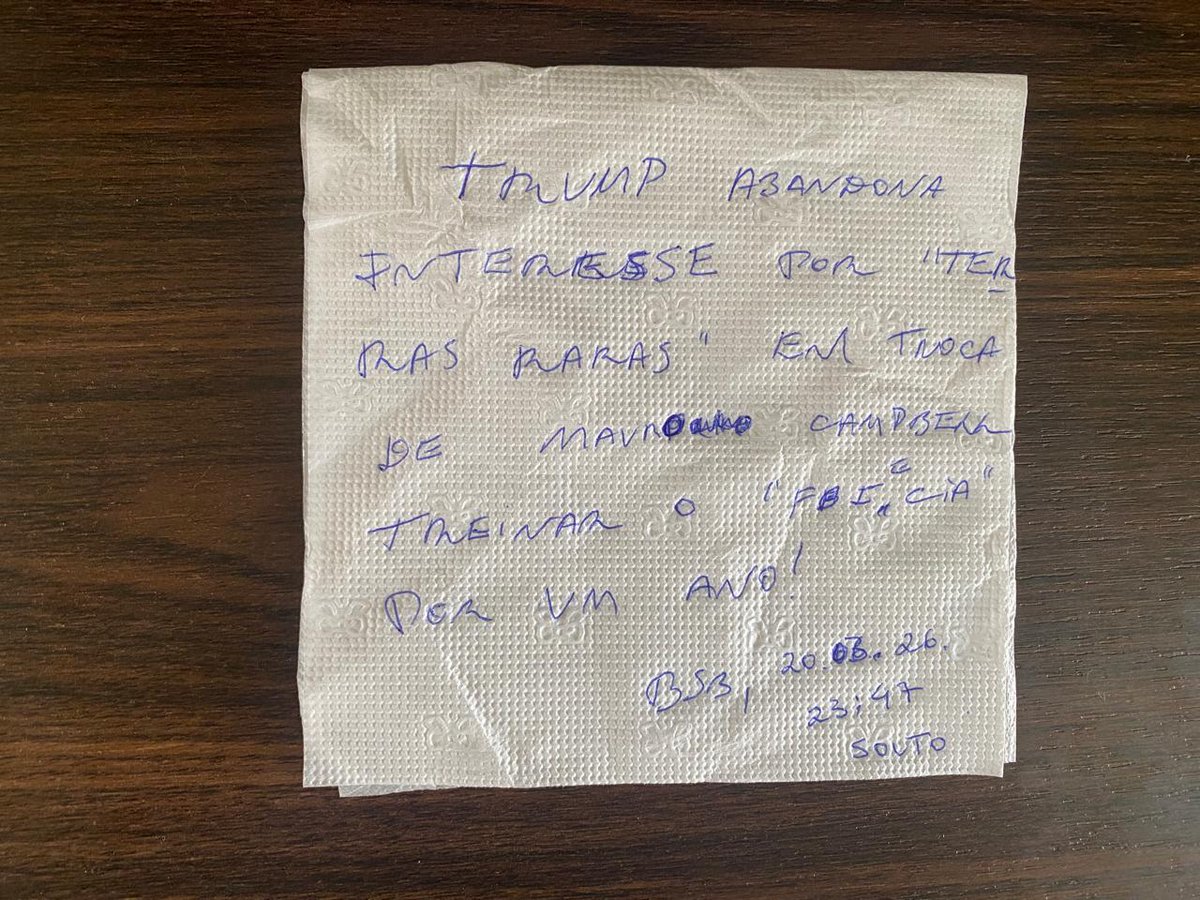 TRUMP ABANDONA
INTERESSE POR "TER
RAS RARAS" EM TROCA
DE MAURO CAMPBELL
TREINAR O "FBI" E "CIA"
POR UM ANO!
BSB, 20.03.26.
23:47
SOUTO